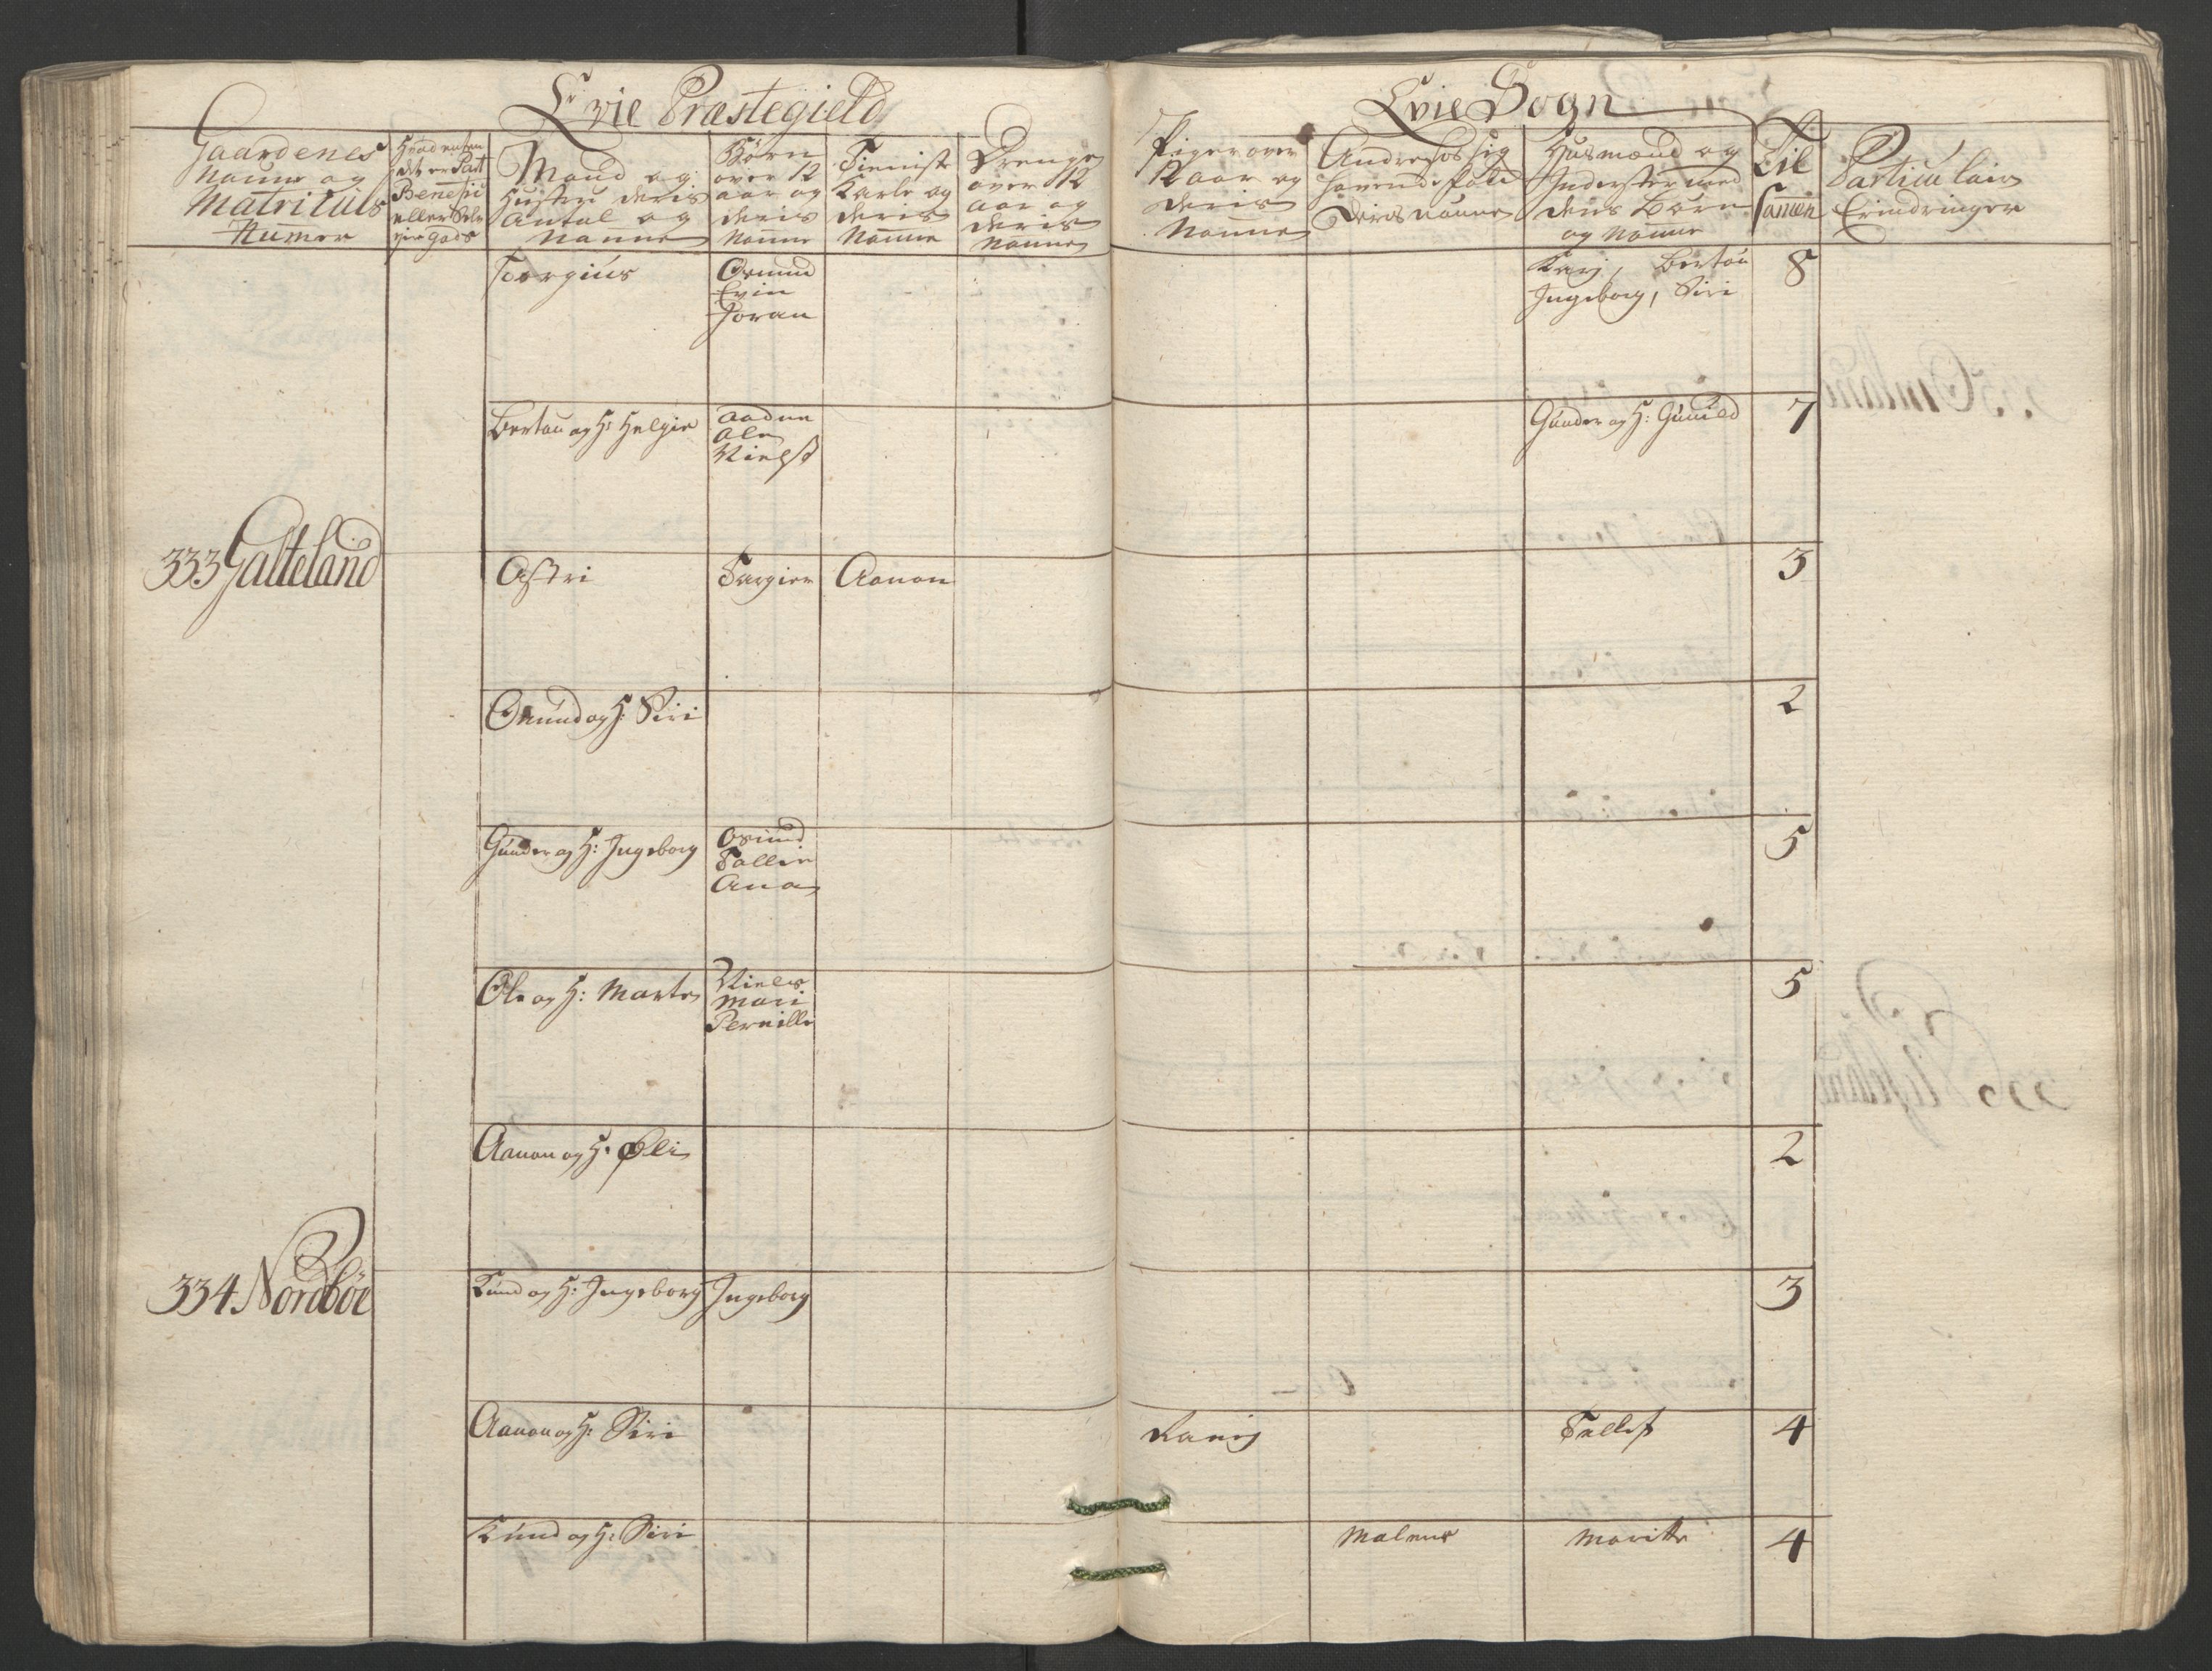 Evie Præstegield
Evie Sogn
Gaardenes
Nafne og
Matriculs
Numer
det er Patt
Benefisie
eller
gods
Mand og
Hustru deris
Antal og
Nafne
Børn
over 12
aar og
deris
Nafne
Tienist
Karle og
deris
Nafne
Drenge
over 12
aar og
deris
Nafne
Piger over
12 aar og
deris
Nafne
Andre hos sig
havende folk
deris nafne
Husmænd og
Inderster med
deris Børn
og Nafne
Til
samen
Particulair
Erindringer
Torgius
Osmund
Evin
Joran
Kari, Bertou
Ingeborg, Siri
8
Bertou og H: Helgie
Aadne
Ole
Nielst
Gunder og H: Gunild
7
333 Galteland
Astri
Targier
Aanon
3
Omund og H: Siri
2
Gunder og H: Ingeborg
Osmund
Tallie
Ana
5
Ole og H: Marte
Niels
Mari
Pernille
5
Aanon og H: Øli
2
334 Nordbøe
Knud og H: Ingeborg
Ingeborg
3
Aanon og H: Siri
Ranij
Tellef
4
Knud og H: Siri
Malene
Maritte
4